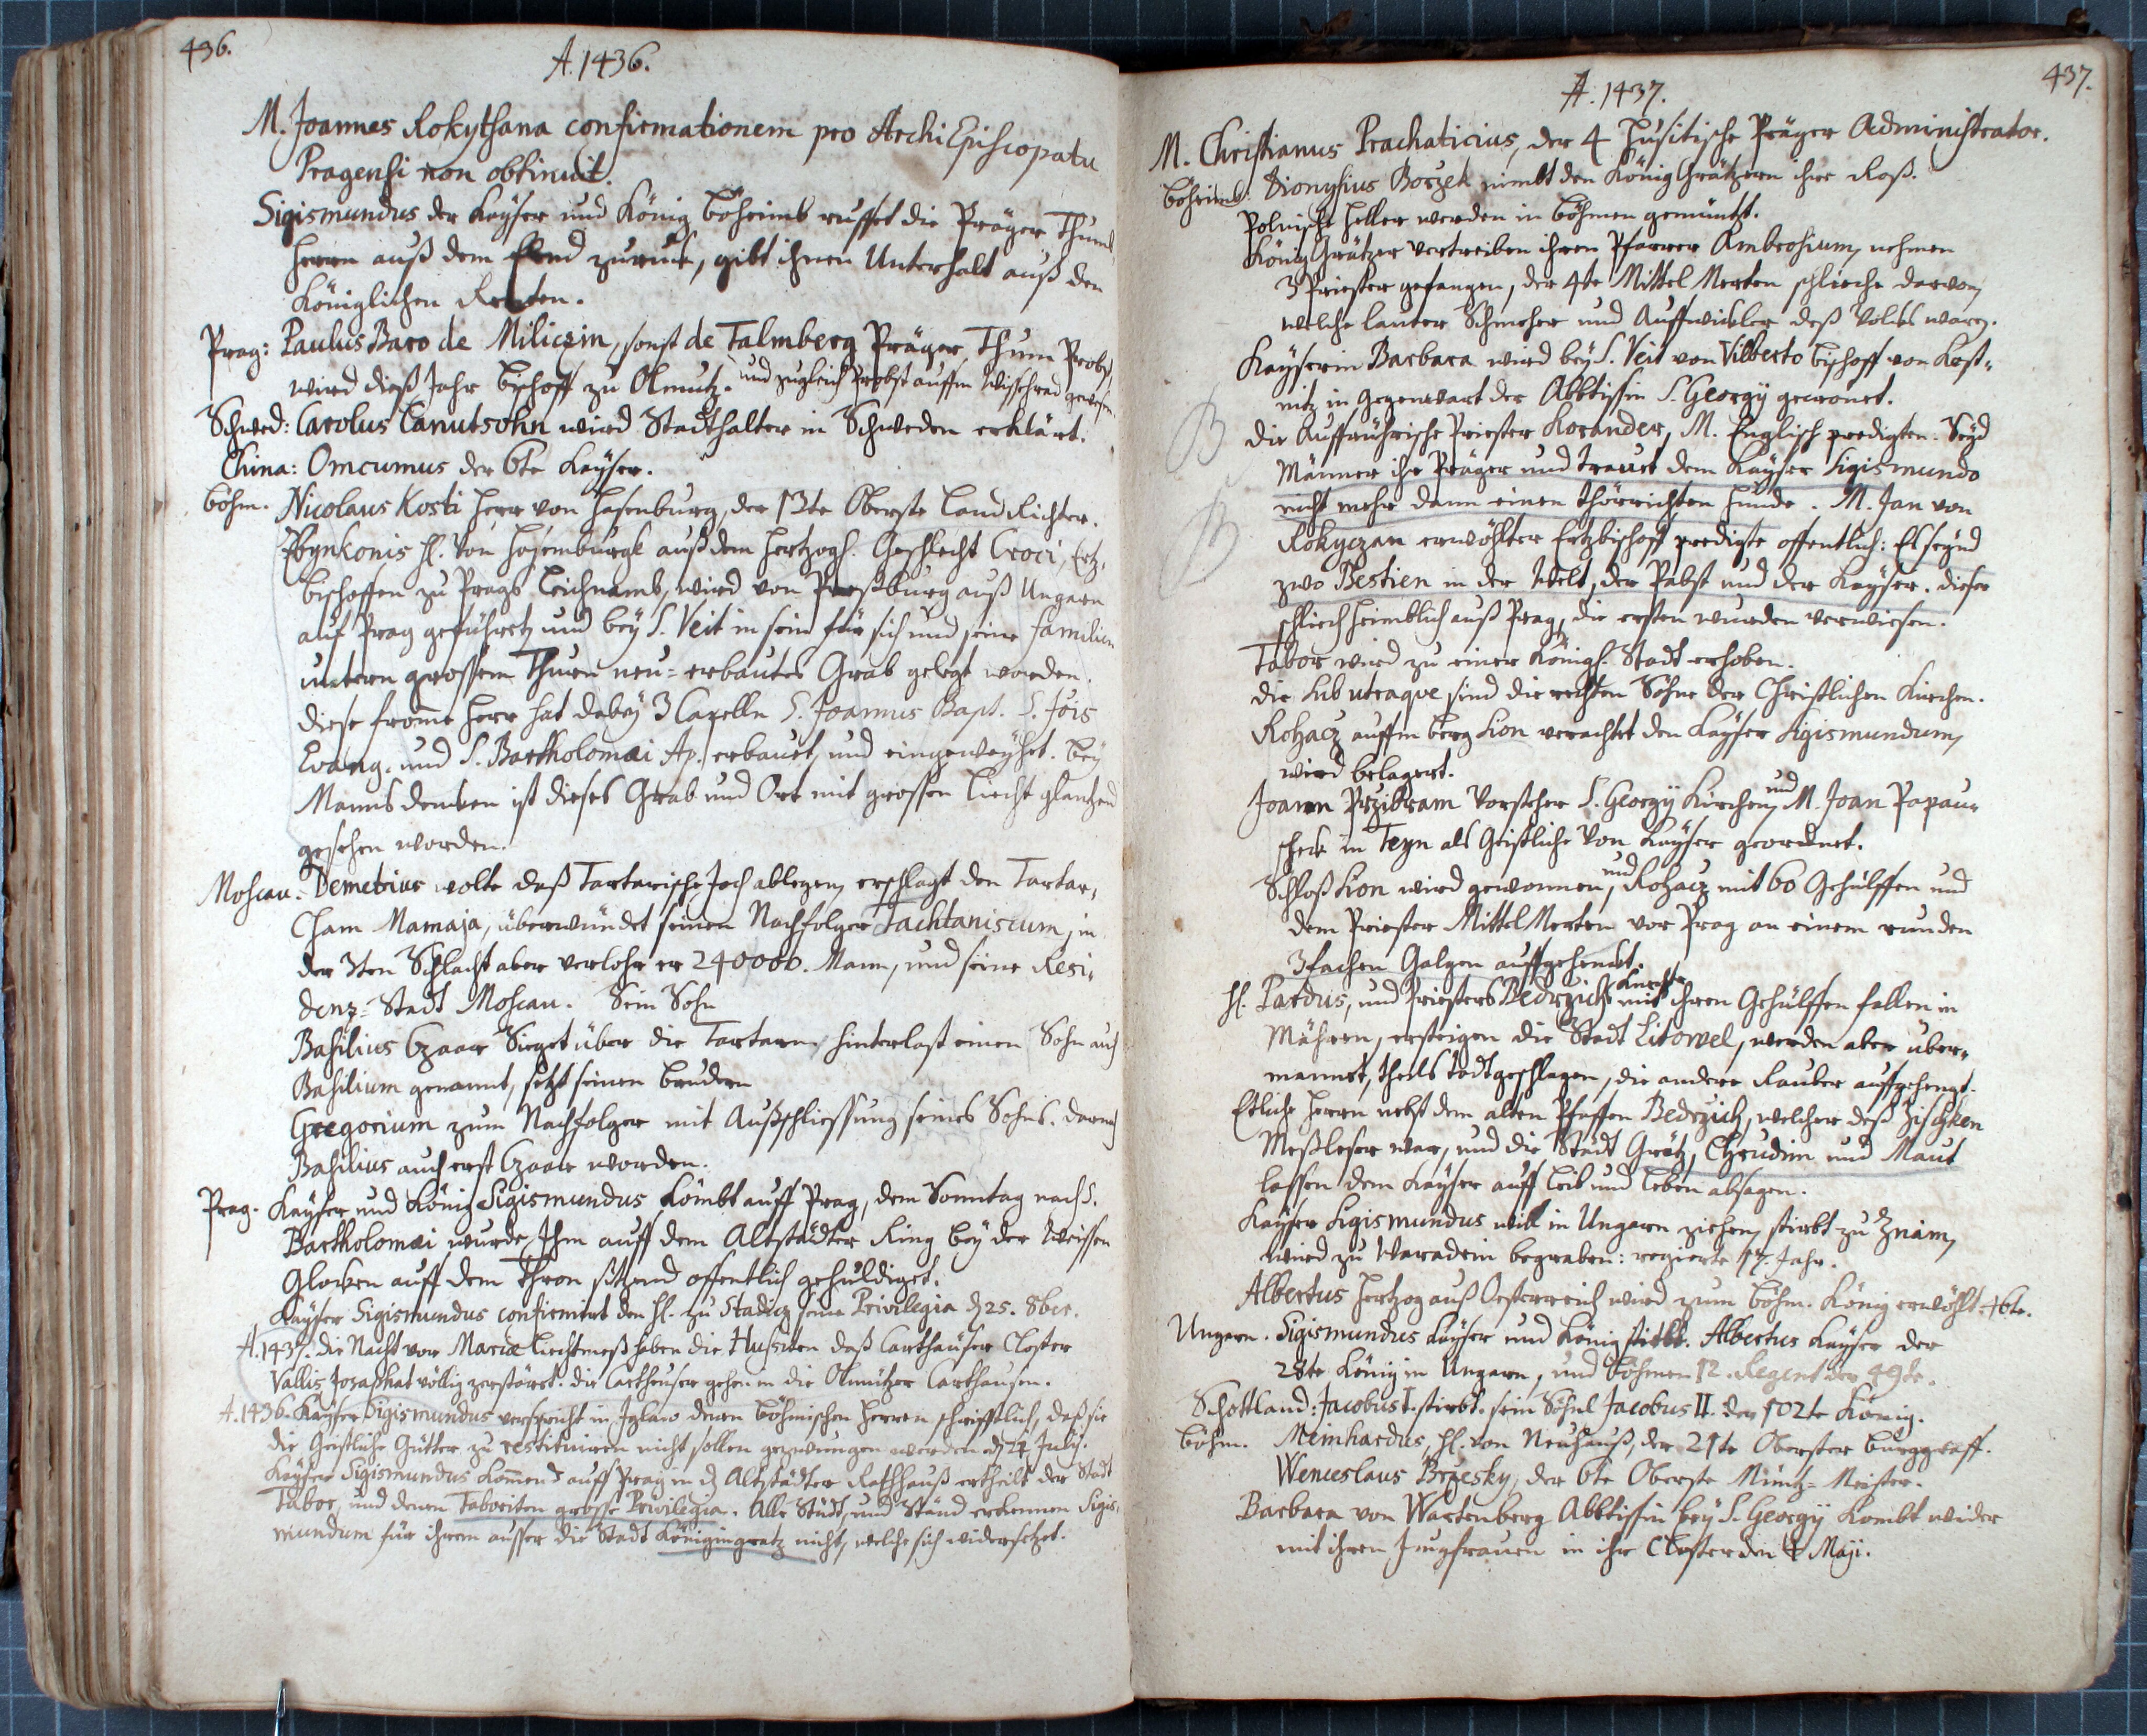 436.
A. 1436.
M. Joannes Rokythana confirmationem pro ArchiEpiscopatu
Pragensi non obtinuit.
Sigismundus der Kayser und König Böheimb ruffet die Präger Thumb
Herrn auß dem Elend zuruck, gibt ihnen Unterhalt auß den
Königlichen Renten.
Prag: Paulus Baro de Miliczin, sonst de Talmberg Präger Thum Probst,
wird dieß Jahr Bischoff zu Olmutz. und zugleich Probst auffm Wischerad gewesen.
Schwed: Carolus Canutsohn wird Stadthalter in Schweden erklärt.
China: Omcumus der 6te Kayser.
Böhm. Nicolaus Kosti Herr von Hasenburg, der 13te Oberste LandRichter.
Zbynkonis H. von Hasemburgk auß dem Hertzogl. Geschlecht Croci, Ertz-
bischoffen zu Prags Leichnamb, wird von Preßburg auß Ungarn
auf Prag geführet, und bey S. Veit in sein für sich und seine Familien
untern grossem Thurn neu-erbautes Grab gelegt worden.
Diese fromme Herr hat dabey 3 Capelln S. Joannis Bapt. S. Jõis
Evang. und S. Bartholomæi Ap. erbauet, und eingeweyhet. Bey
Manns denken ist dieses Grab und Ort mit grossen Liecht glantzend
gesehen worden.
Moscau. Demetrius wolte daß Tartarische Joch ablegen, erschlagt den Tartar-
Cham Mamaja, überwündet seinen Nachfolger Tachtaniscum, in
der 3ten Schlacht aber verlohr er 240000. Mann, und seine Resi-
denz-Stadt Moscau. Sein Sohn
Basilius Czaar Sieget über die Tartarn, hinterlast einen Sohn auch
Basilium genannt, setzt seinen Brudern
Gregorium zum Nachfolger mit Außschliessung seines Sohns. Darnach
Basilius auch erst Czaar worden.
Prag. Kayser und König Sigismundus kombt auff Prag, dem Sonntag nach S.
Bartholomæi wurde Ihm auff dem Altstädter Ring bey der Weissen
Glocken auff dem Thron sitzend offentlich gehuldiget.
Kayser Sigismundus confirmirt den H. zu Stadicz seine Privilegia d 25. 8ber.
A. 1437. die Nacht vor Mariæ Liechtmeß haben die Hussiten daß Carthäuser Closter
Vallis Josaphat völlig zerstöret. die Cartheuser gehen in die Olmützer Carthausen.
A. 1436. Kayser Sigismundus verspricht in Iglaw denen Böhmischen Herren schrifftlich, daß sie
die Geistliche Gütter zu restituiren nicht sollen gezwungen werden d 24 Julij.
Kayser Sigismundus kommend auff Prag in d Altstädter Rathhauß ertheilt der Stadt
Tabor, und denen Taboriten grosse Privilegia. Alle Städt, und Ständ erkennen Sigis-
mundum für ihren ausser die Stadt Königingratz nicht, welche sich widersetzet.
437.
A. 1437.
M. Christianus Prachaticius, der 4 Husitische Präger Administrator.
Böheimb: Dionysius Borzek nimbt den KönigGrätzern ihre Roß.
Polnische Heller werden in Böhmen gemüntzt.
KönigGrätzer vertreiben ihren Pfarrer Ambrosium, nehmen
3 Priester gefangen, der 4te Mittel Merten schliche darvon,
welche lauter Schmeher und Auffwickler deß Volcks waren.
Kayserin Barbara wird bey S. Veit von Vilberto Bischoff von Kost-
nitz in Gegenwart der Abbtissin S. Georgij gecronet.
Die Auffrührische Priester Korander, M. Englisch predigten: Seyd
Männer ihr Präger und trauet dem Kayser Sigismundo
nicht mehr dann einen thörrichten Hunde. M. Jan von
Rokyczan erwöhlter Ertzbischoff predigte offentlich: Es seynd
zwo Bestien in der Welt, der Pabst und der Kayser. dieser
schlich heimblich auß Prag, die ersten wurden verwiesen.
Tabor wird zu einer Königl. Stadt erhoben.
Die sub utraque sind die rechten Söhne der Christlichen Kirchen.
Rohacz auffm Berg Sion verachtet den Kayser Sigismundum,
wird belagert.
Joann Przibram Vorsteher S. Georgij Kirchen, und M. Joan Papau-
scheck in Teyn als Geistliche von Kayser geordnet.
Schloß Sion wird gewonnen, und Rohacz mit 60 Gehülffen und
dem Priester Mittel Merten vor Prag an einem runden
3fachen Galgen auffgehenckt.
H. Pardus, und Priesters Bedrzichs Knechte mit ihren Gehülffen fallen in
Mähren, ersteigen die Stadt Litowel, werden aber über-
mannet, theils todtgeschlagen, die andere Rauber auffgehengt.
Etliche Herrn nebst dem alten Pfaffen Bedrzich, welcher deß Zischken
Meßleser war, und die Städt Grätz, Chrudim und Maut
lassen dem Kayser auff Leib und Leben absagen.
Kayser Sigismundus will in Ungarn ziehen, stirbt zu Znaim,
wird zu Waradein begraben: regierte 17. Jahr.
Albertus Hertzog auß Oesterreich wird zum Böhm. König erwöhlt
Ungarn. Sigismundus Kayser und König stirbt. Albertus Kayser der
28te König in Ungarn, und Böhmen 12. Regent der 49te.
Schottland: Jacobus I. stirbt. sein Söhnl Jacobus II. der 102te König.
Böhm. Meinhardus, H. von Neuhauß, der 21te Oberster Burggraff.
Wenceslaus Brzesky, der 6te Oberste Müntz-Meister.
Barbara von Wartenberg Abbtissin bey S. Georgij kombt wider
mit ihren Jungfrauen in ihr Closter den 4 Maji.